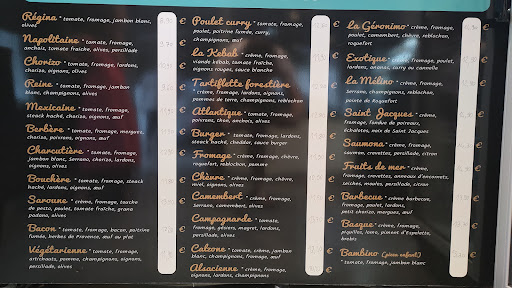 Régina * tomate, fromage, jambon blanc,
olives
Napolitaine * tomate, fromage,
anchois, tomate fraîche, olives, persillade
Chorizo * tomate, fromage, lardons,
chorizo, oignons, olives
Reine * tomate, fromage, jambon
blanc, champignons, olives
Mexicaine * tomate, fromage,
steack haché, chorizo, poivrons,
oignons, œuf
Berbère * tomate, fromage, merguez,
chorizo, poivrons, oignons, olives
Charcutière * tomate, fromage,
jambon blanc, Serrano, chorizo, lardons,
oignons, olives
Bouchère * tomate, fromage, steack
haché, lardons, oignons, œuf
Saroune * crème, fromage, tourche
de pesto, poulet, tomate fraîche, grana
padano, olives
Bacon * tomate, fromage, bacon, poitrine
fumée, herbes de Provence, œuf au plat
Végétarienne * tomate, fromage,
artichauts, poivrons, champignons, oignons,
persillade, olives
Poulet curry * crème, fromage,
poulet, poitrine fumée, curry,
champignons, œuf
La Kebab * crème, fromage,
viande kebab, tomate fraîche,
oignons rouges, sauce blanche
Tartiflette forestière
* crème, fromage, lardons, oignons,
pommes de terre, champignons, reblochon
Atlantique * tomate, fromage,
poivrons, thon, anchois, olives
Burger * tomate, fromage, lardons,
steack haché, cheddar, sauce burger
Fromage * crème, fromage, chèvre,
roquefort, reblochon, pomme
Chèvre * crème, fromage, chèvre,
miel, oignons, olives
Camembert * crème, fromage,
Serrano, camembert, olives
Campagnarde * tomate,
fromage, gésiers, magret, lardons,
persillade, olives
Calzone * tomate, crème, jambon
blanc, champignons, fromage, œuf
Alsacienne * crème, fromage,
oignons, lardons, champignons
La Géronimo * crème, fromage,
poulet, camembert, chèvre, reblochon,
roquefort
Exotique * crème, fromage, poulet,
lardons, ananas, curry ou cannelle
La Mélino * crème, fromage,
Serrano, champignons, reblochon,
pointe de Roquefort
Saint Jacques * crème,
fromage, fondue de poireaux,
échalotes, noix de Saint Jacques
Saumona * crème, fromage,
saumon, crevettes, persillade, citron
Fruits de mer * crème,
fromage, crevettes, anneaux d'encornets,
seiches, moules, persillade, citron
Barbecue * crème barbecue,
fromage, poulet, lardons,
petit chorizo, merguez, œuf
Basque * crème, fromage,
piquillos, lomo, piment d'Espelette,
brebis
Bambino (pizza enfant)
* tomate, fromage, jambon blanc